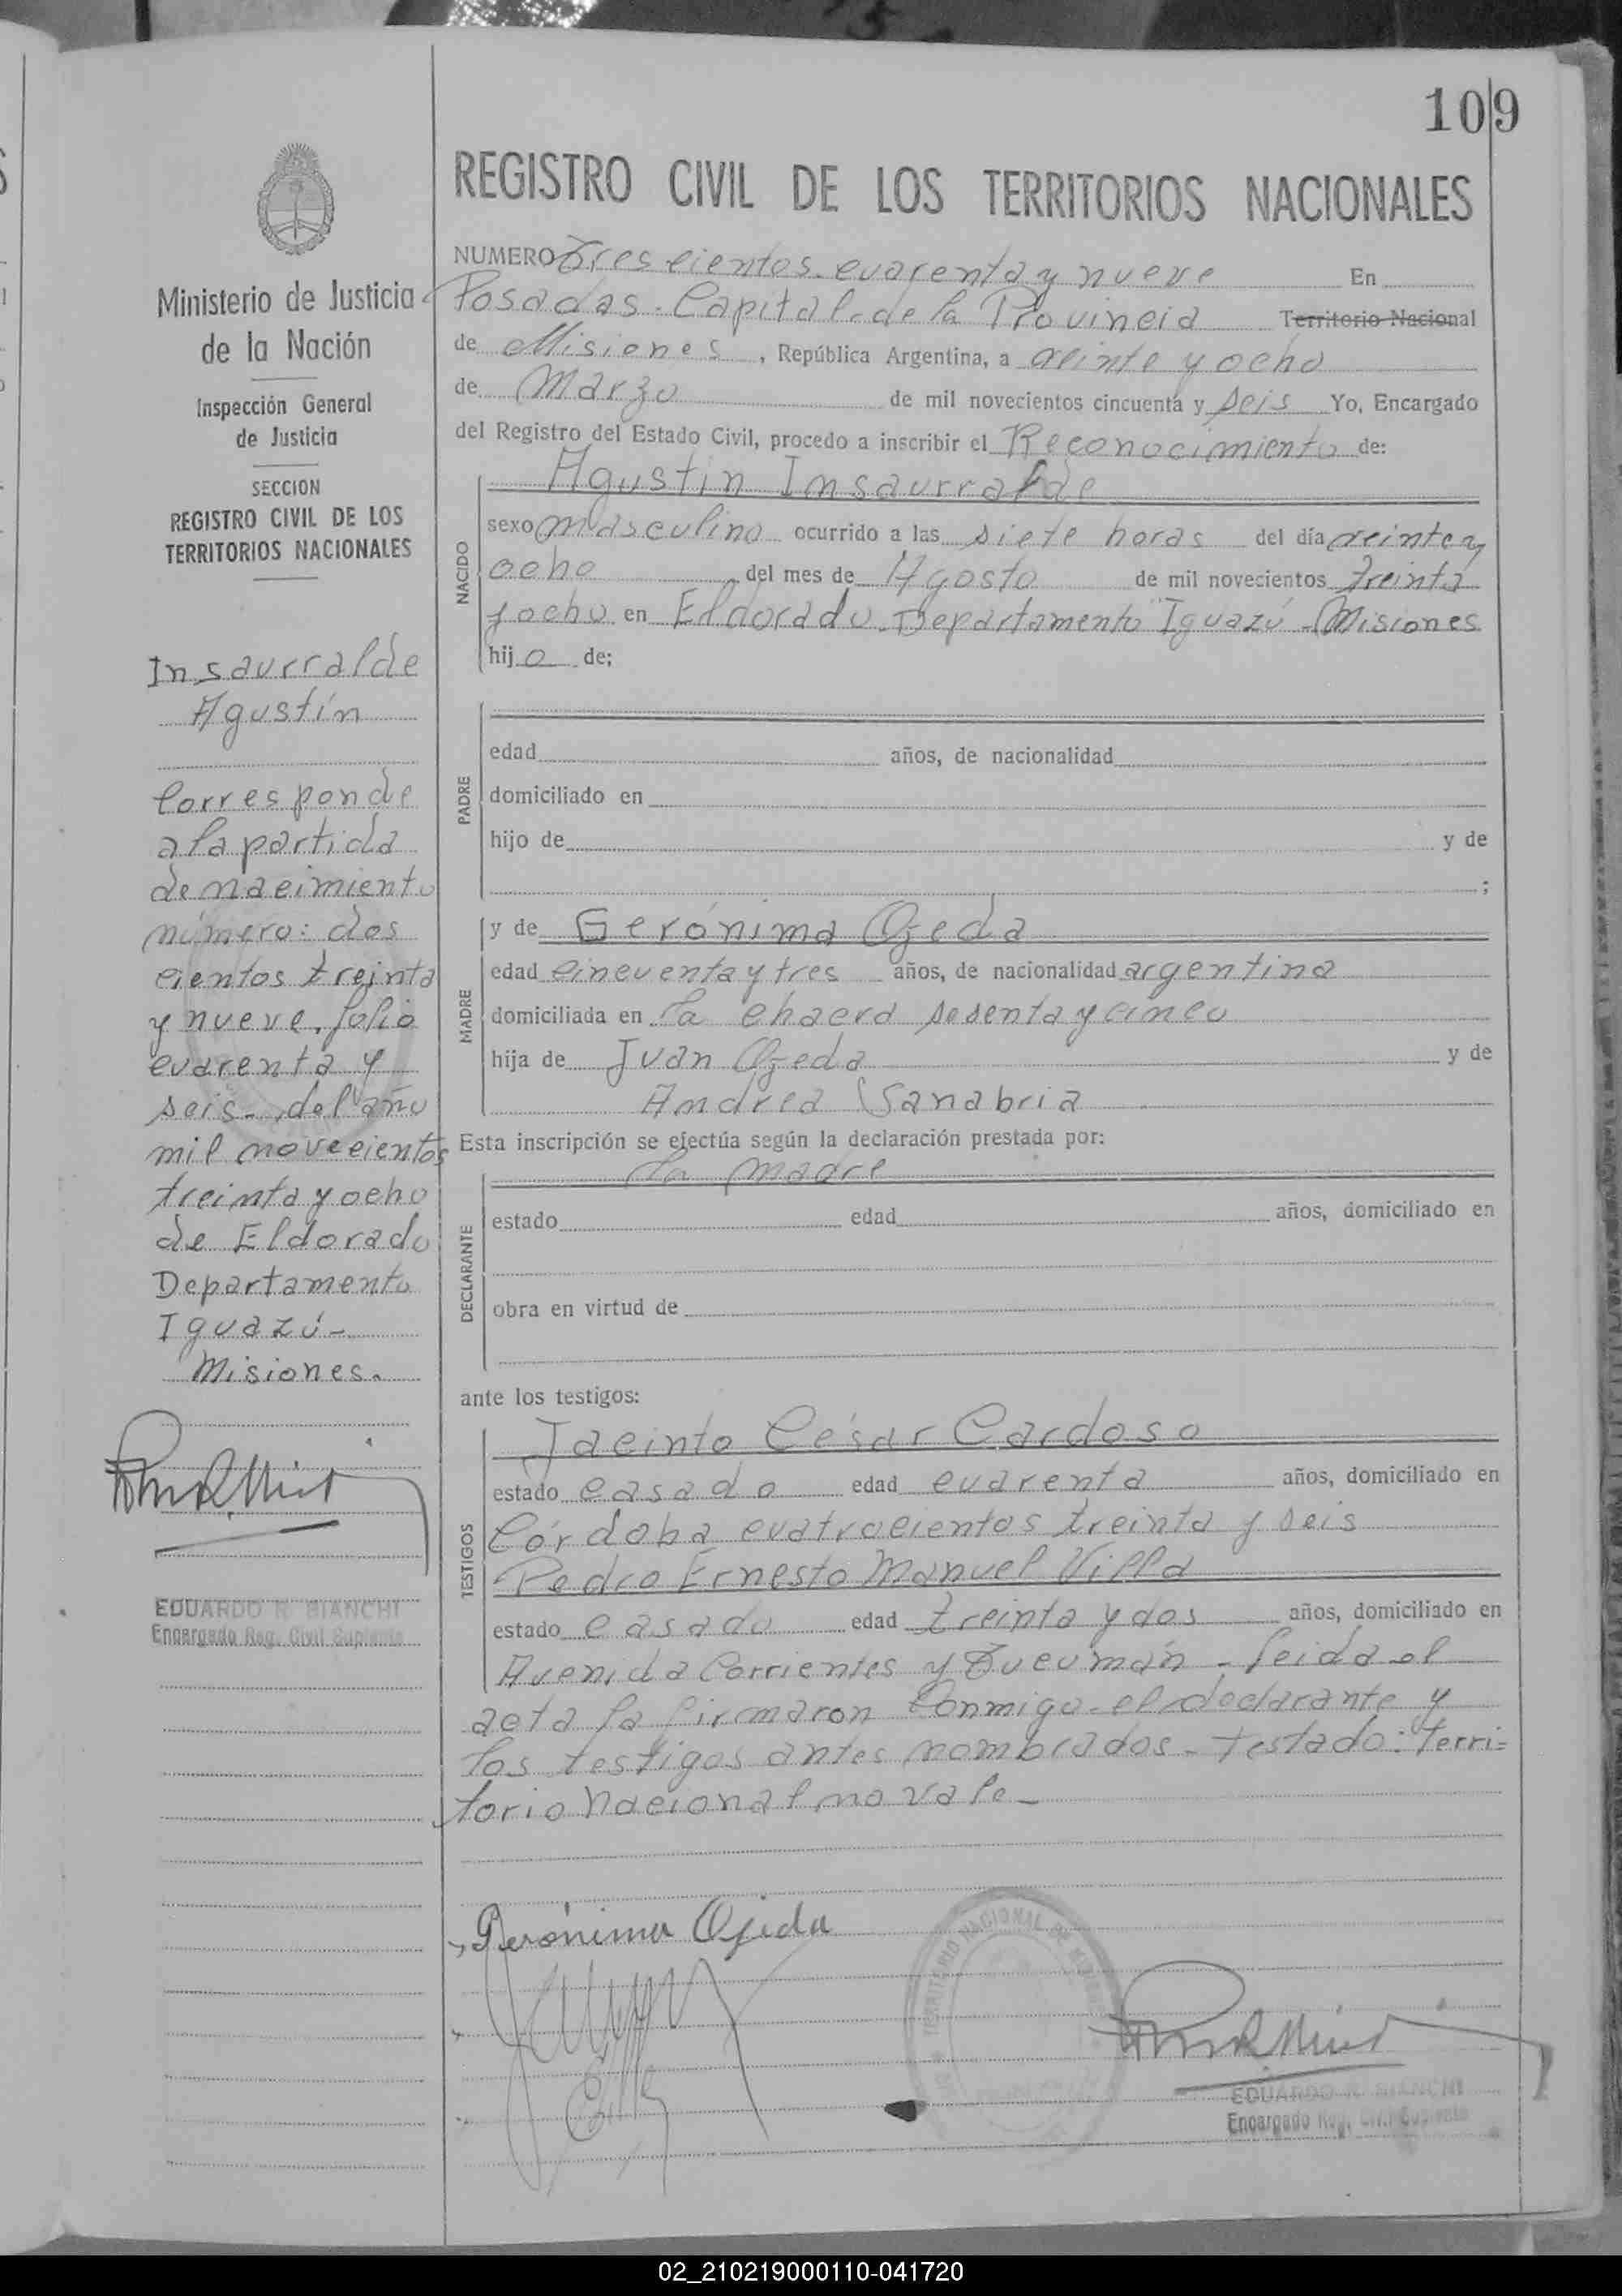 109
Ministerio de Justicia
de la Nación
Inspección General
de Justicia
SECCION
REGISTRO CIVIL DE LOS
TERRITORIOS NACIONALES
Insaurralde
Agustín
Corresponde
a la partida
de nacimiento
número: dos
cientos treinta
y nueve, folio
cuarenta y
seis-, del año
mil novecientos
treinta y ocho
de Eldorado
Departamento
Iguazú-
Misiones.
EDUARDO R. BIANCHI
Encargado Reg. Civil Suplente
REGISTRO CIVIL DE LOS TERRITORIOS NACIONALES
NUMERO Trescientos cuarenta y nueve En
Posadas. Capital de la Provincia Territorio Nacional
de Misiones, República Argentina, a veinte y ocho
de Marzo de mil novecientos cincuenta y seis Yo, Encargado
del Registro del Estado Civil, procedo a inscribir el Reconocimiento de:
Agustín Insaurralde
NACIDO
sexo masculino ocurrido a las siete horas del día veinte y
ocho del mes de Agosto de mil novecientos treinta
y ocho en Eldorado. Departamento Iguazú - Misiones
hijo de;
PADRE
edad años, de nacionalidad
domiciliado en
hijo de y de
;
MADRE
y de Gerónima Ojeda
edad cincuenta y tres años, de nacionalidad argentina
domiciliada en la chacra sesenta y cinco
hija de Juan Ojeda y de
Andrea Sanabria
Esta inscripción se efectúa según la declaración prestada por:
la madre
DECLARANTE
estado edad años, domiciliado en
obra en virtud de
ante los testigos:
TESTIGOS
Jacinto César Cardoso
estado casado edad cuarenta años, domiciliado en
Córdoba cuatrocientos treinta y seis
Pedro Ernesto Manuel Villa
estado casado edad treinta y dos años, domiciliado en
Avenida Corrientes y Tucumán - leida el
acta la firmaron conmigo el declarante y
los testigos antes nombrados - Testado: Terri=
torio Nacional no vale -
Gerónima Ojeda
TERRITORIO NACIONAL DE MISIONES
EDUARDO R. BIANCHI
Encargado Reg. Civil Suplente
02_210219000110-041720